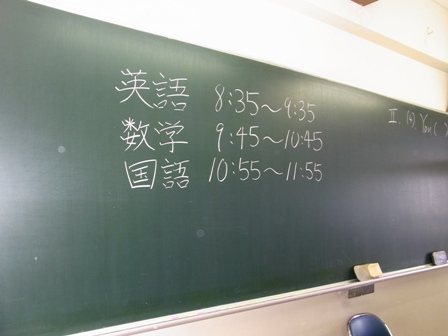 英語 8:35〜9:35
数学 9:45〜10:45
国語 10:55〜11:55
II. (4) You (